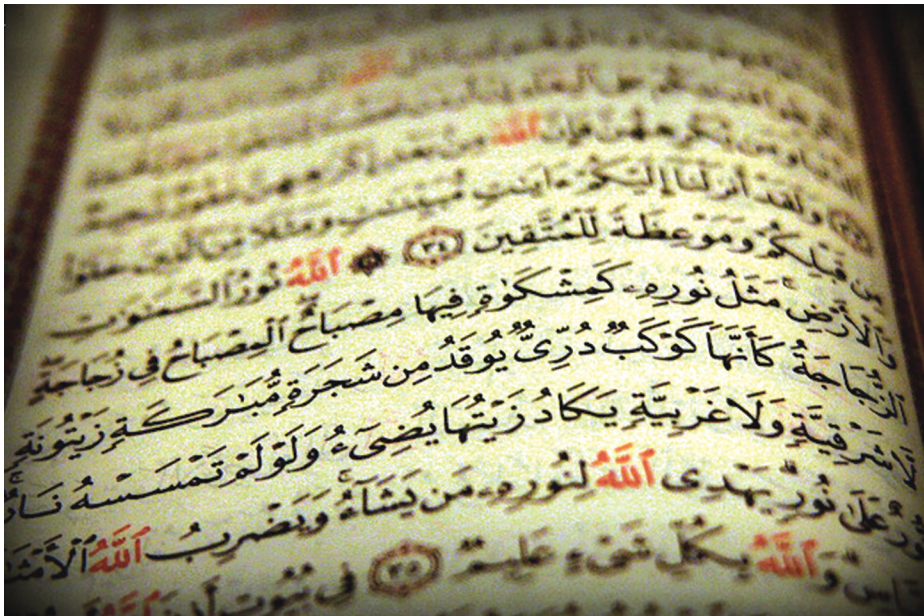 ٱلدُّنْيَا وَمَن يُكْرِههُّنَّ فَإِنَّ ٱللَّهَ مِنۢ بَعْدِ إِكْرَٰهِهِنَّ غَفُورٌ رَّحِيمٌ
٣٣ وَلَقَدْ أَنزَلْنَآ إِلَيْكُمْ ءَايَٰتٍ مُّبَيِّنَٰتٍ وَمَثَلًا مِّنَ ٱلَّذِينَ خَلَوْا۟
مِن قَبْلِكُمْ وَمَوْعِظَةً لِّلْمُتَّقِينَ ٣٤ ۞ ٱللَّهُ نُورُ ٱلسَّمَٰوَٰتِ
وَٱلْأَرْضِ ۚ مَثَلُ نُورِهِۦ كَمِشْكَوٰةٍ فِيهَا مِصْبَاحٌ ۖ ٱلْمِصْبَاحُ فِى زُجَاجَةٍ ۖ
ٱلزُّجَاجَةُ كَأَنَّهَا كَوْكَبٌ دُرِّىٌّ يُوقَدُ مِن شَجَرَةٍ مُّبَٰرَكَةٍ زَيْتُونَةٍ
لَّا شَرْقِيَّةٍ وَلَا غَرْبِيَّةٍ يَكَادُ زَيْتُهَا يُضِىٓءُ وَلَوْ لَمْ تَمْسَسْهُ نَارٌ ۚ
نُّورٌ عَلَىٰ نُورٍ ۗ يَهْدِى ٱللَّهُ لِنُورِهِۦ مَن يَشَآءُ ۚ وَيَضْرِبُ ٱللَّهُ ٱلْأَمْثَا
اسِ ۗ وَٱللَّهُ بِكُلِّ شَىْءٍ عَلِيمٌ ٣٥ فِى بُيُوتٍ أَذِنَ ٱللَّهُ